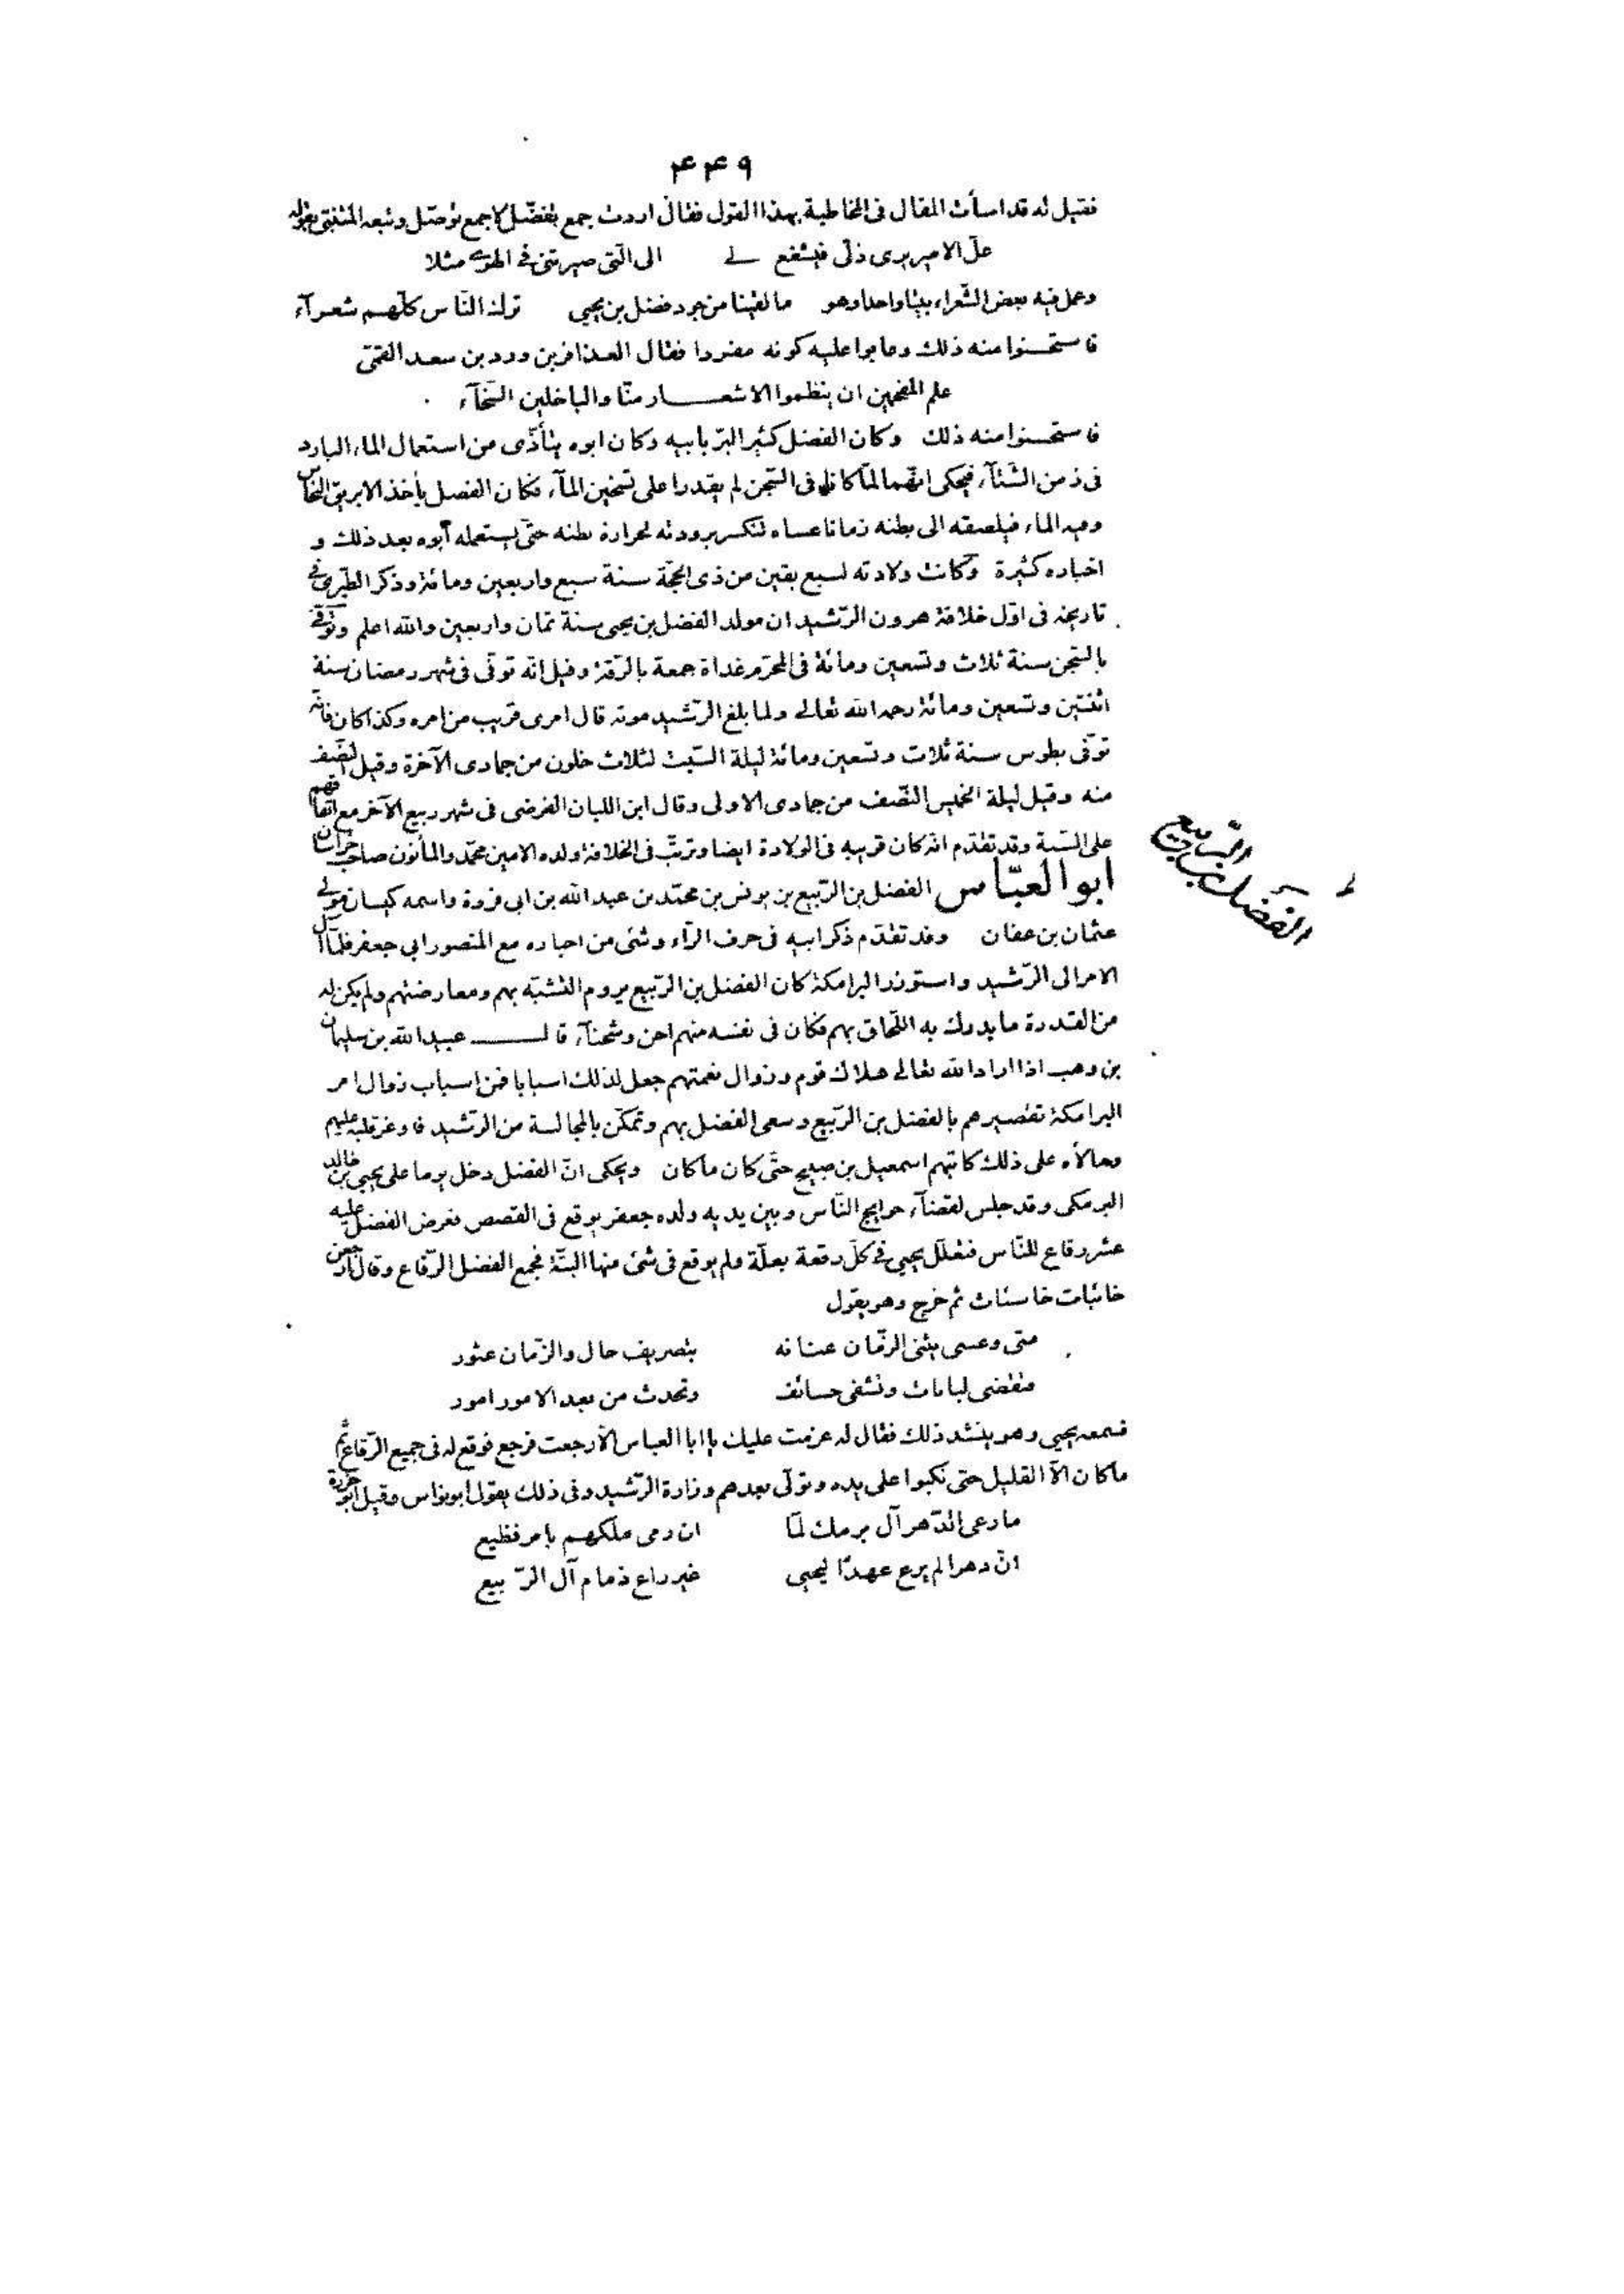 ۴۴۹
فقيل له قد اسأت المقال فى المخاطبة بهذا القول فقال اردت جمع تفضّل لا جمع توصّل وتبعه المتنبّى بقوله
علّ الامير يرى ذلّى فيشفع لے الى الّتى صيرتنى فے الهوے مثلا
وعمل فيه بعض الشّعراء بيتا واحدا وهو ما لقينا من جود فضل بن يحيى ترك النّاس كلّهم شعرآء
فاستحسنوا منه ذلك وعابوا عليه كونه مفردا فقال العذافر بن ورد بن سعد القمّى
علم المفحمين ان ينظموا الاشعار منّا والباخلين السّخآء
فاستحسنوا منه ذلك وكان الفضل كثير البرّ بابيه وكان ابوه يتأذّى من استعمال الماء البارد
فى زمن الشّتآء فيحكى انّهما لمّا كانا فى السّجن لم يقدرا على تسخين المآء فكان الفضل يأخذ الابريق النّحاس
وفيه الماء فيلصقه الى بطنه زمانا عساه تنكسر برودته لحرارة بطنه حتّى يستعمله أبوه بعد ذلك و
اخباره كثيرة وكانت ولادته لسبع بقين من ذى الحجّة سنة سبع واربعين ومائة وذكر الطّبرى فے
تاريخه فى اوّل خلافة هرون الرّشيد ان مولد الفضل بن يحيى سنة ثمان واربعين والله اعلم وتوفّے
بالسّجن سنة ثلاث وتسعين ومائة فى المحرّم غداة جمعة بالرّقة وقيل انّه توفّى فى شهر رمضان سنة
اثنتين وتسعين ومائة رحمه الله تعالے ولما بلغ الرّشيد موته قال امرى قريب من امره وكذا كان فانّه
توفّى بطوس سنة ثلاث وتسعين ومائة ليلة السّبت لثلاث خلون من جمادى الآخرة وقيل النّصف
منه وقيل ليلة الخميس النّصف من جمادى الاولى وقال ابن اللبان الفرضى فى شهر ربيع الآخر مع اتّفاقهم
على السّنة وقد تقدّم انّه كان قريبه فى الولادة ايضا وترتّب فى الخلافة ولده الامين محمّد والمأمون صاحب خراسان
ابو العبّاس الفضل بن الرّبيع بن يونس بن محمّد بن عبد الله بن ابى فروة واسمه كيسان مولے
عثمان بن عفان وقد تقدّم ذكر ابيه فى حرف الرّاء وشئ من اخباره مع المنصور ابى جعفر فلمّا آل
الامر الى الرّشيد واستوزر البرامكة كان الفضل بن الرّبيع يروم التّشبّه بهم ومعارضتهم ولم يكن له
من القدرة ما يدرك به اللّحاق بهم فكان فى نفسه منهم احن وشحنآء قال عبيد الله بن سليمان
بن وهب اذا اراد الله تعالے هلاك قوم وزوال نعمتهم جعل لذلك اسبابا فمن اسباب زوال امر
البرامكة تقصيرهم بالفضل بن الرّبيع وسعى الفضل بهم وتمكّن بالمجالسة من الرّشيد فاوغر قلبه عليهم
ومالأه على ذلك كاتبهم اسمعيل بن صبيح حتّى كان ما كان ويحكى انّ الفضل دخل يوما على يحيى بن خالد
البرمكى وقد جلس لقضآء حوايج النّاس وبين يديه ولده جعفر يوقع فى القصص فعرض الفضل عليه
عشر رقاع للنّاس فتعلّل يحيى فے كلّ رقعة بعلّة ولم يوقع فى شئ منها البتّة فجمع الفضل الرّقاع وقال ارجعن
خائبات خاسئات ثم خرج وهو يقول
متى وعسى يثنى الزمّان عنانه بتصريف حال والزّمان عثور
فتقضى لبانات وتشفى حسائف وتحدث من بعد الامور امور
فسمعه يحيى وهو ينشد ذلك فقال له عزمت عليك يا ابا العباس الاّ رجعت فرجع فوقع له فى جميع الرّقاع ثمّ
ما كان الاّ القليل حتى نكبوا على يده وتولّى بعدهم وزارة الرّشيد وفى ذلك يقول ابو نواس وقيل ابو حزرة
ما رعى الدّهر آل برمك لمّا ان رمى ملكهم بامر فظيع
انّ دهرا لم يرع عهدًا ليحيى غير راع ذمام آل الرّبيع
الفضل بن الرّبيع